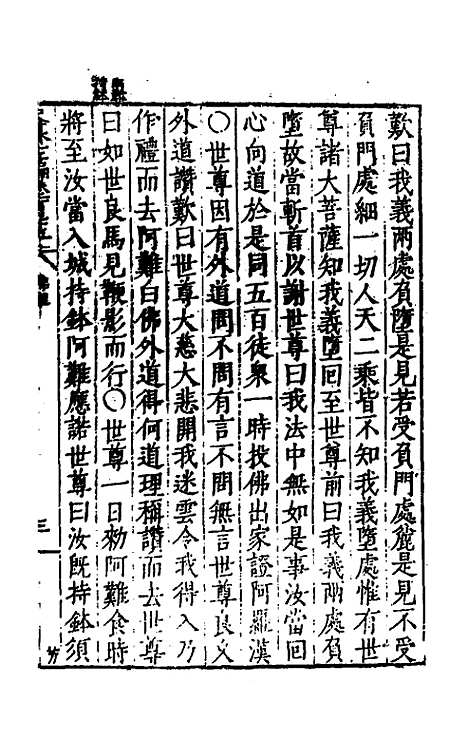 歎曰我義兩處負墮是見若受負門處麄是見不受
負門處細一切人天二乘皆不知我義墮處惟有世
尊諸大菩薩知我義墮回至世尊前曰我義兩處負
墮故當斬首以謝世尊曰我法中無如是事汝當回
心向道於是同五百徒衆一時投佛出家證阿羅漢
〇世尊因有外道問不問有言不問無言世尊良久
外道讚歎曰世尊大慈大悲開我迷雲令我得入乃
作禮而去阿難白佛外道得何道理稱讚而去世尊
曰如世良馬見鞭影而行〇世尊一日勑阿難食時
將至汝當入城持鉢阿難應諾世尊曰汝既持鉢須
三